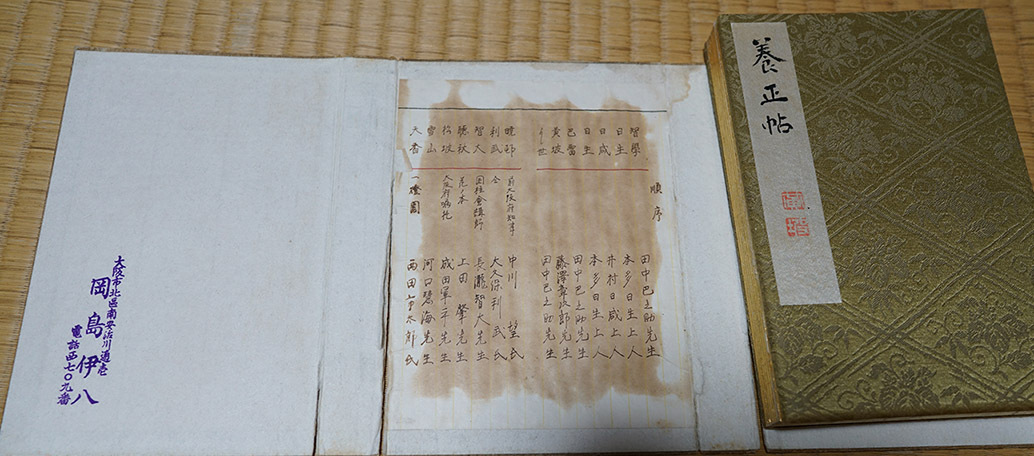 養正帖
順序
智學 田中巴之助先生
日生 本多日生上人
日咸 井村日咸上人
日生 本多日生上人
田中巴之助先生
黄坡 藤澤章次郎先生
田中巴之助先生
前大阪府知事 中川 望氏
利武 仝 大久保利武氏
智大 国柱會講師 長瀧智大先生
聴秋 花ノ本 上田 肇先生
大阪府嘱托 成田軍平先生
雪山 河口慧海先生
天香 一燈園 西田市太郎氏
大阪市北區南安治川通壱
岡島伊八
電話西七〇九番